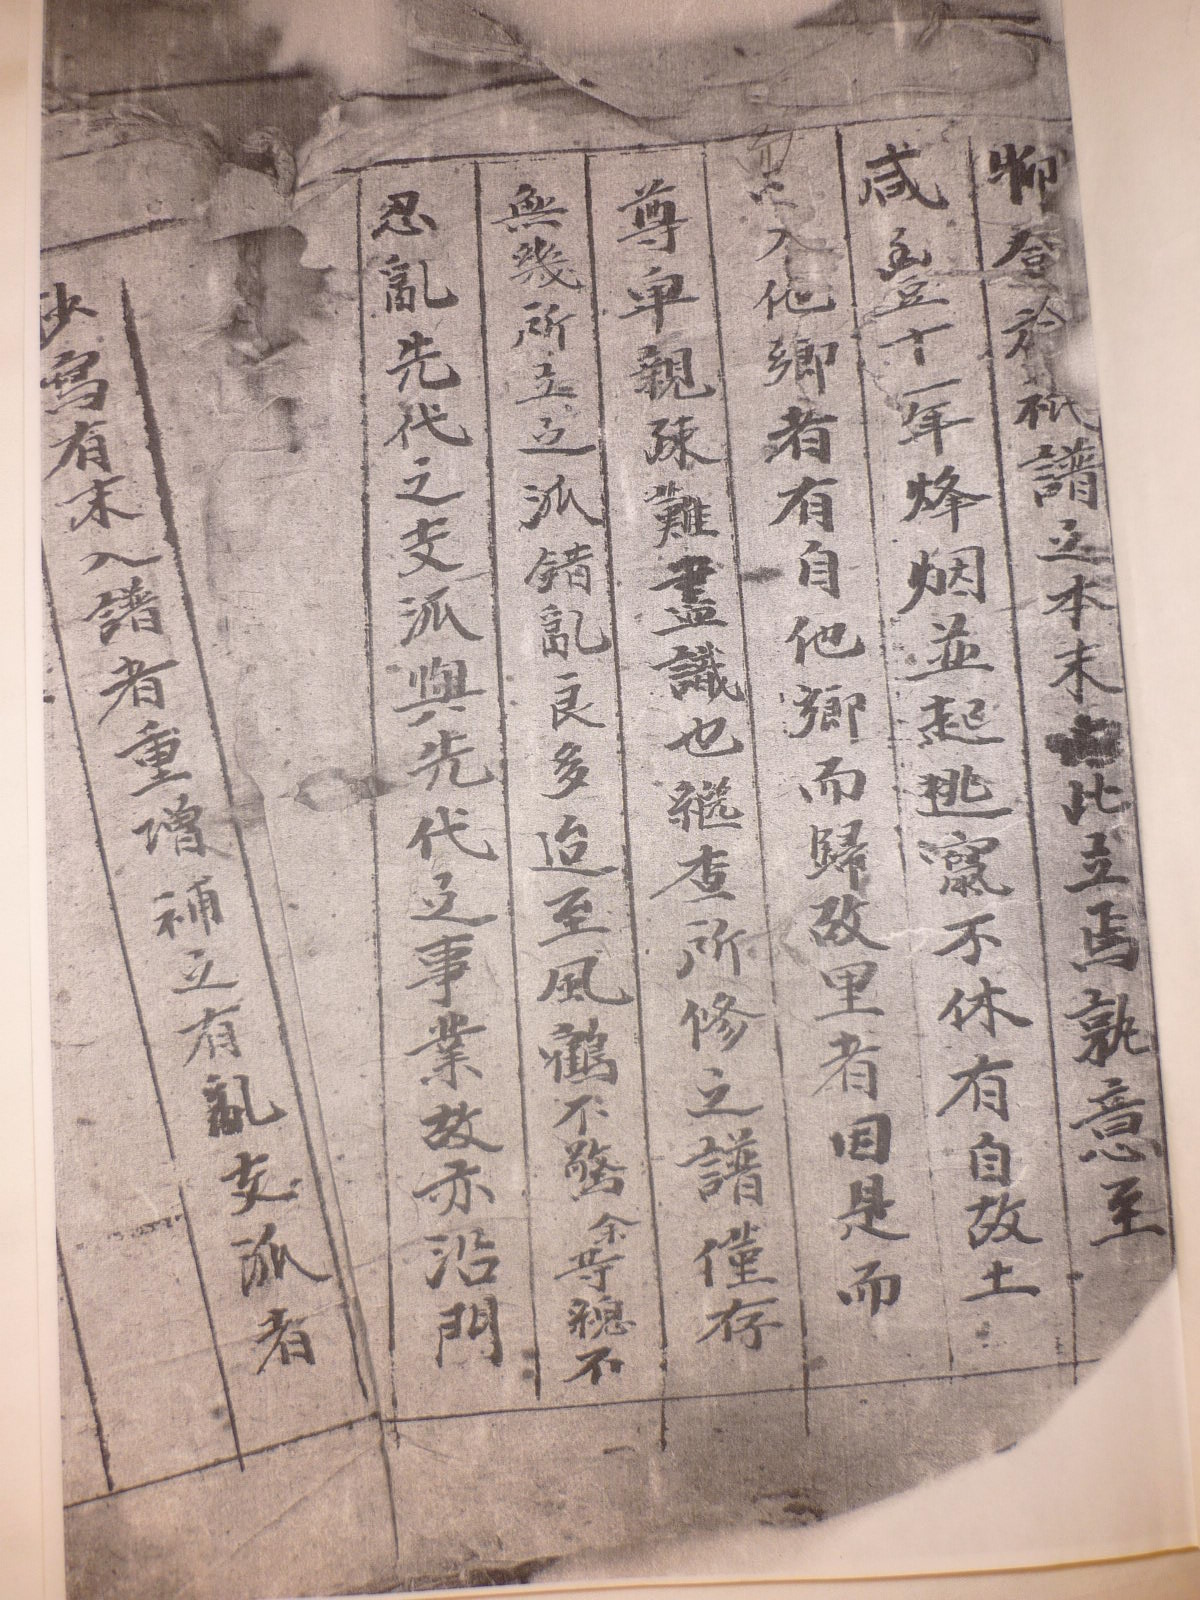 聊登於祇譜之本末比立焉孰意至
咸豐十一年烽烟並起逃竄不休有自故土
入他鄉者有自他鄉而歸故里者因是而
尊卑親疎難盡識也継查所修之譜僅存
無幾所立之派錯亂良多迨至風鶴不驚余等總不
忍亂先代之支派與先代之事業故亦沿門
抄寫有未入譜者重增補立有亂支派者